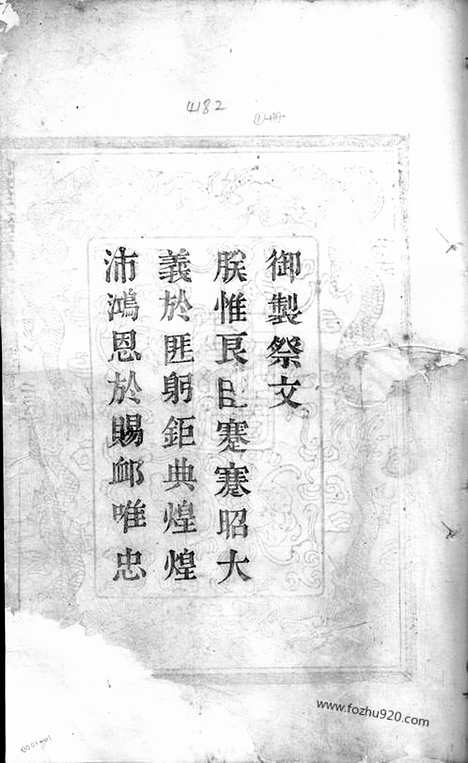 4182
御製祭文
朕惟良臣蹇蹇昭大
義於匪躬鉅典煌煌
沛鴻恩於賜卹唯忠
www.fozhu920.com